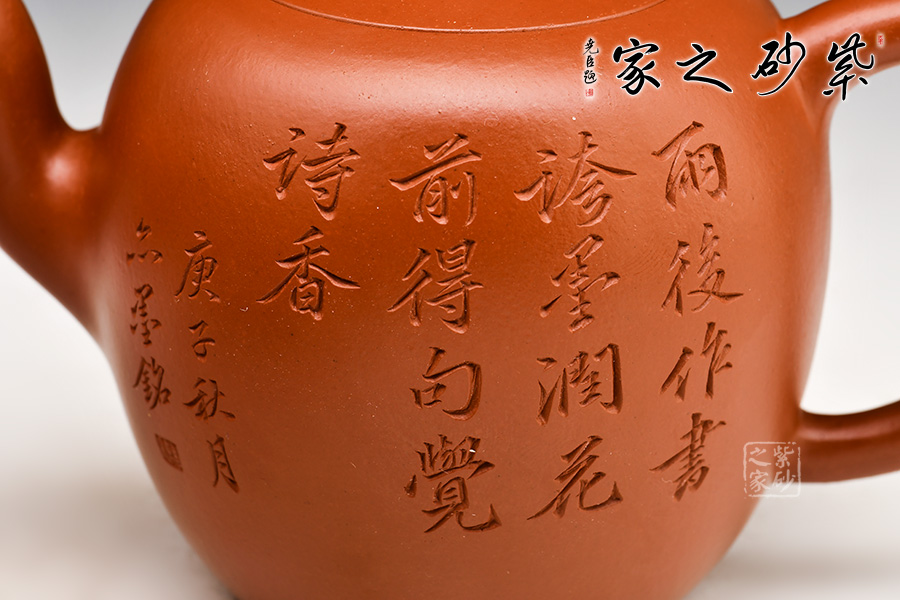 雨後作書
誇墨潤花
前得句覺
詩香
庚子秋月
亦墨銘
紫砂之家
堯臣題
紫砂之家